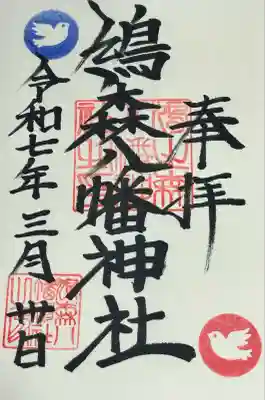 奉拝
鳩森八幡神社
令和七年三月卅日